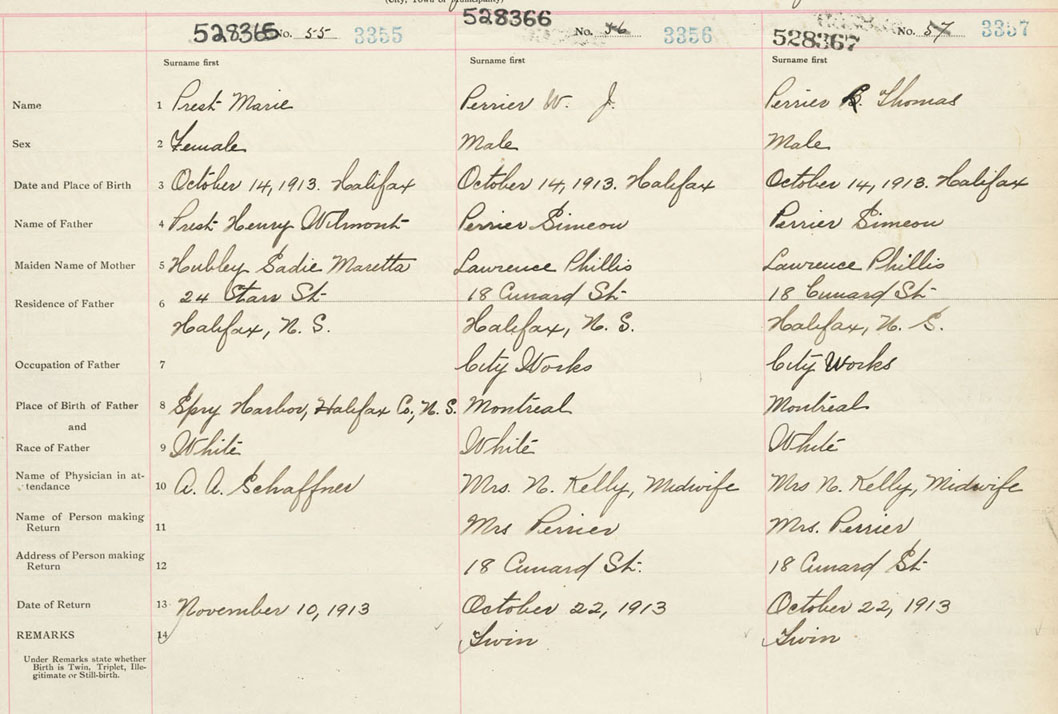 (City, Town or Municipality)
528365 No. 55 3355 528366 No. 56 3356 528367 No. 57 3357
Surname first Surname first Surname first
Name 1 Prest Marie Perrier W. J. Perrier R. Thomas
Sex 2 Female Male Male
Date and Place of Birth 3 October 14, 1913. Halifax October 14, 1913. Halifax October 14, 1913. Halifax
Name of Father 4 Prest Henry Wilmont Perrier Simeon Perrier Simeon
Maiden Name of Mother 5 Hubley Sadie Maretta Lawrence Phillis Lawrence Phillis
Residence of Father 6 24 Starr St. 18 Cunard St. 18 Cunard St.
Halifax, N. S. Halifax, N. S. Halifax, N. S.
Occupation of Father 7 City Works City Works
Place of Birth of Father 8 Spry Harbor, Halifax Co., N. S. Montreal Montreal
and
Race of Father 9 White White White
Name of Physician in at-
tendance 10 A. A. Schaffner Mrs. N. Kelly, Midwife Mrs N. Kelly, Midwife
Name of Person making
Return 11 Mrs Perrier Mrs. Perrier
Address of Person making
Return 12 18 Cunard St. 18 Cunard St
Date of Return 13 November 10, 1913 October 22, 1913 October 22, 1913
REMARKS 14 Twin Twin
Under Remarks state whether
Birth is Twin, Triplet, Ille-
gitimate or Still-birth.